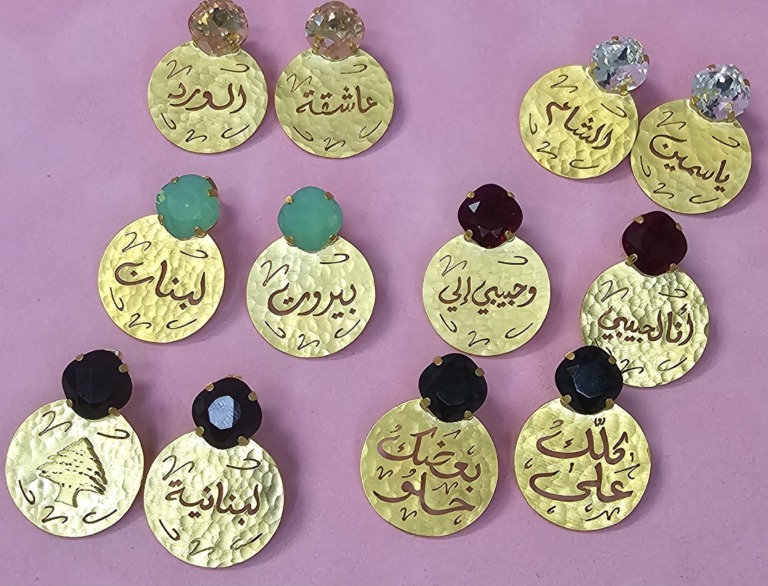 ياسمين
الشام
عاشقة
الورد
أنا لحبيبي
وحبيبي إلي
بيروت
لبنان
كلّك
على
بعضك
حلو
لبنانية